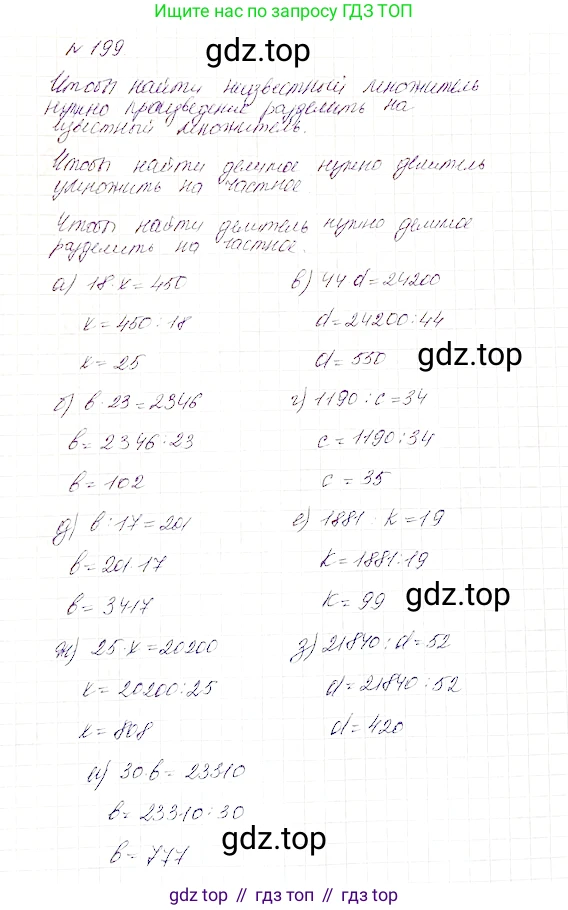 Ищите нас по запросу ГДЗ ТОП
№ 199
gdz.top
Чтобы найти неизвестный множитель
нужно произведение разделить на
известный множитель.
Чтобы найти делимое нужно делитель
умножить на частное.
Чтобы найти делитель нужно делимое
разделить на частное.
а) 18·x=450
x=450:18
x=25
в) 44 d=24200
d=24200:44
d=550
gdz.top
б) b·23=2346
b=2346:23
b=102
г) 1190:c=34
c=1190:34
c=35
д) b:17=201
b=201·17
b=3417
е) 1881:k=19
k=1881:19
k=99
gdz.top
ж) 25·x=20200
x=20200:25
x=808
з) 21840:d=52
d=21840:52
d=420
и) 30·b=23310
b=23310:30
b=777
gdz.top
gdz top // гдз топ // gdz.top